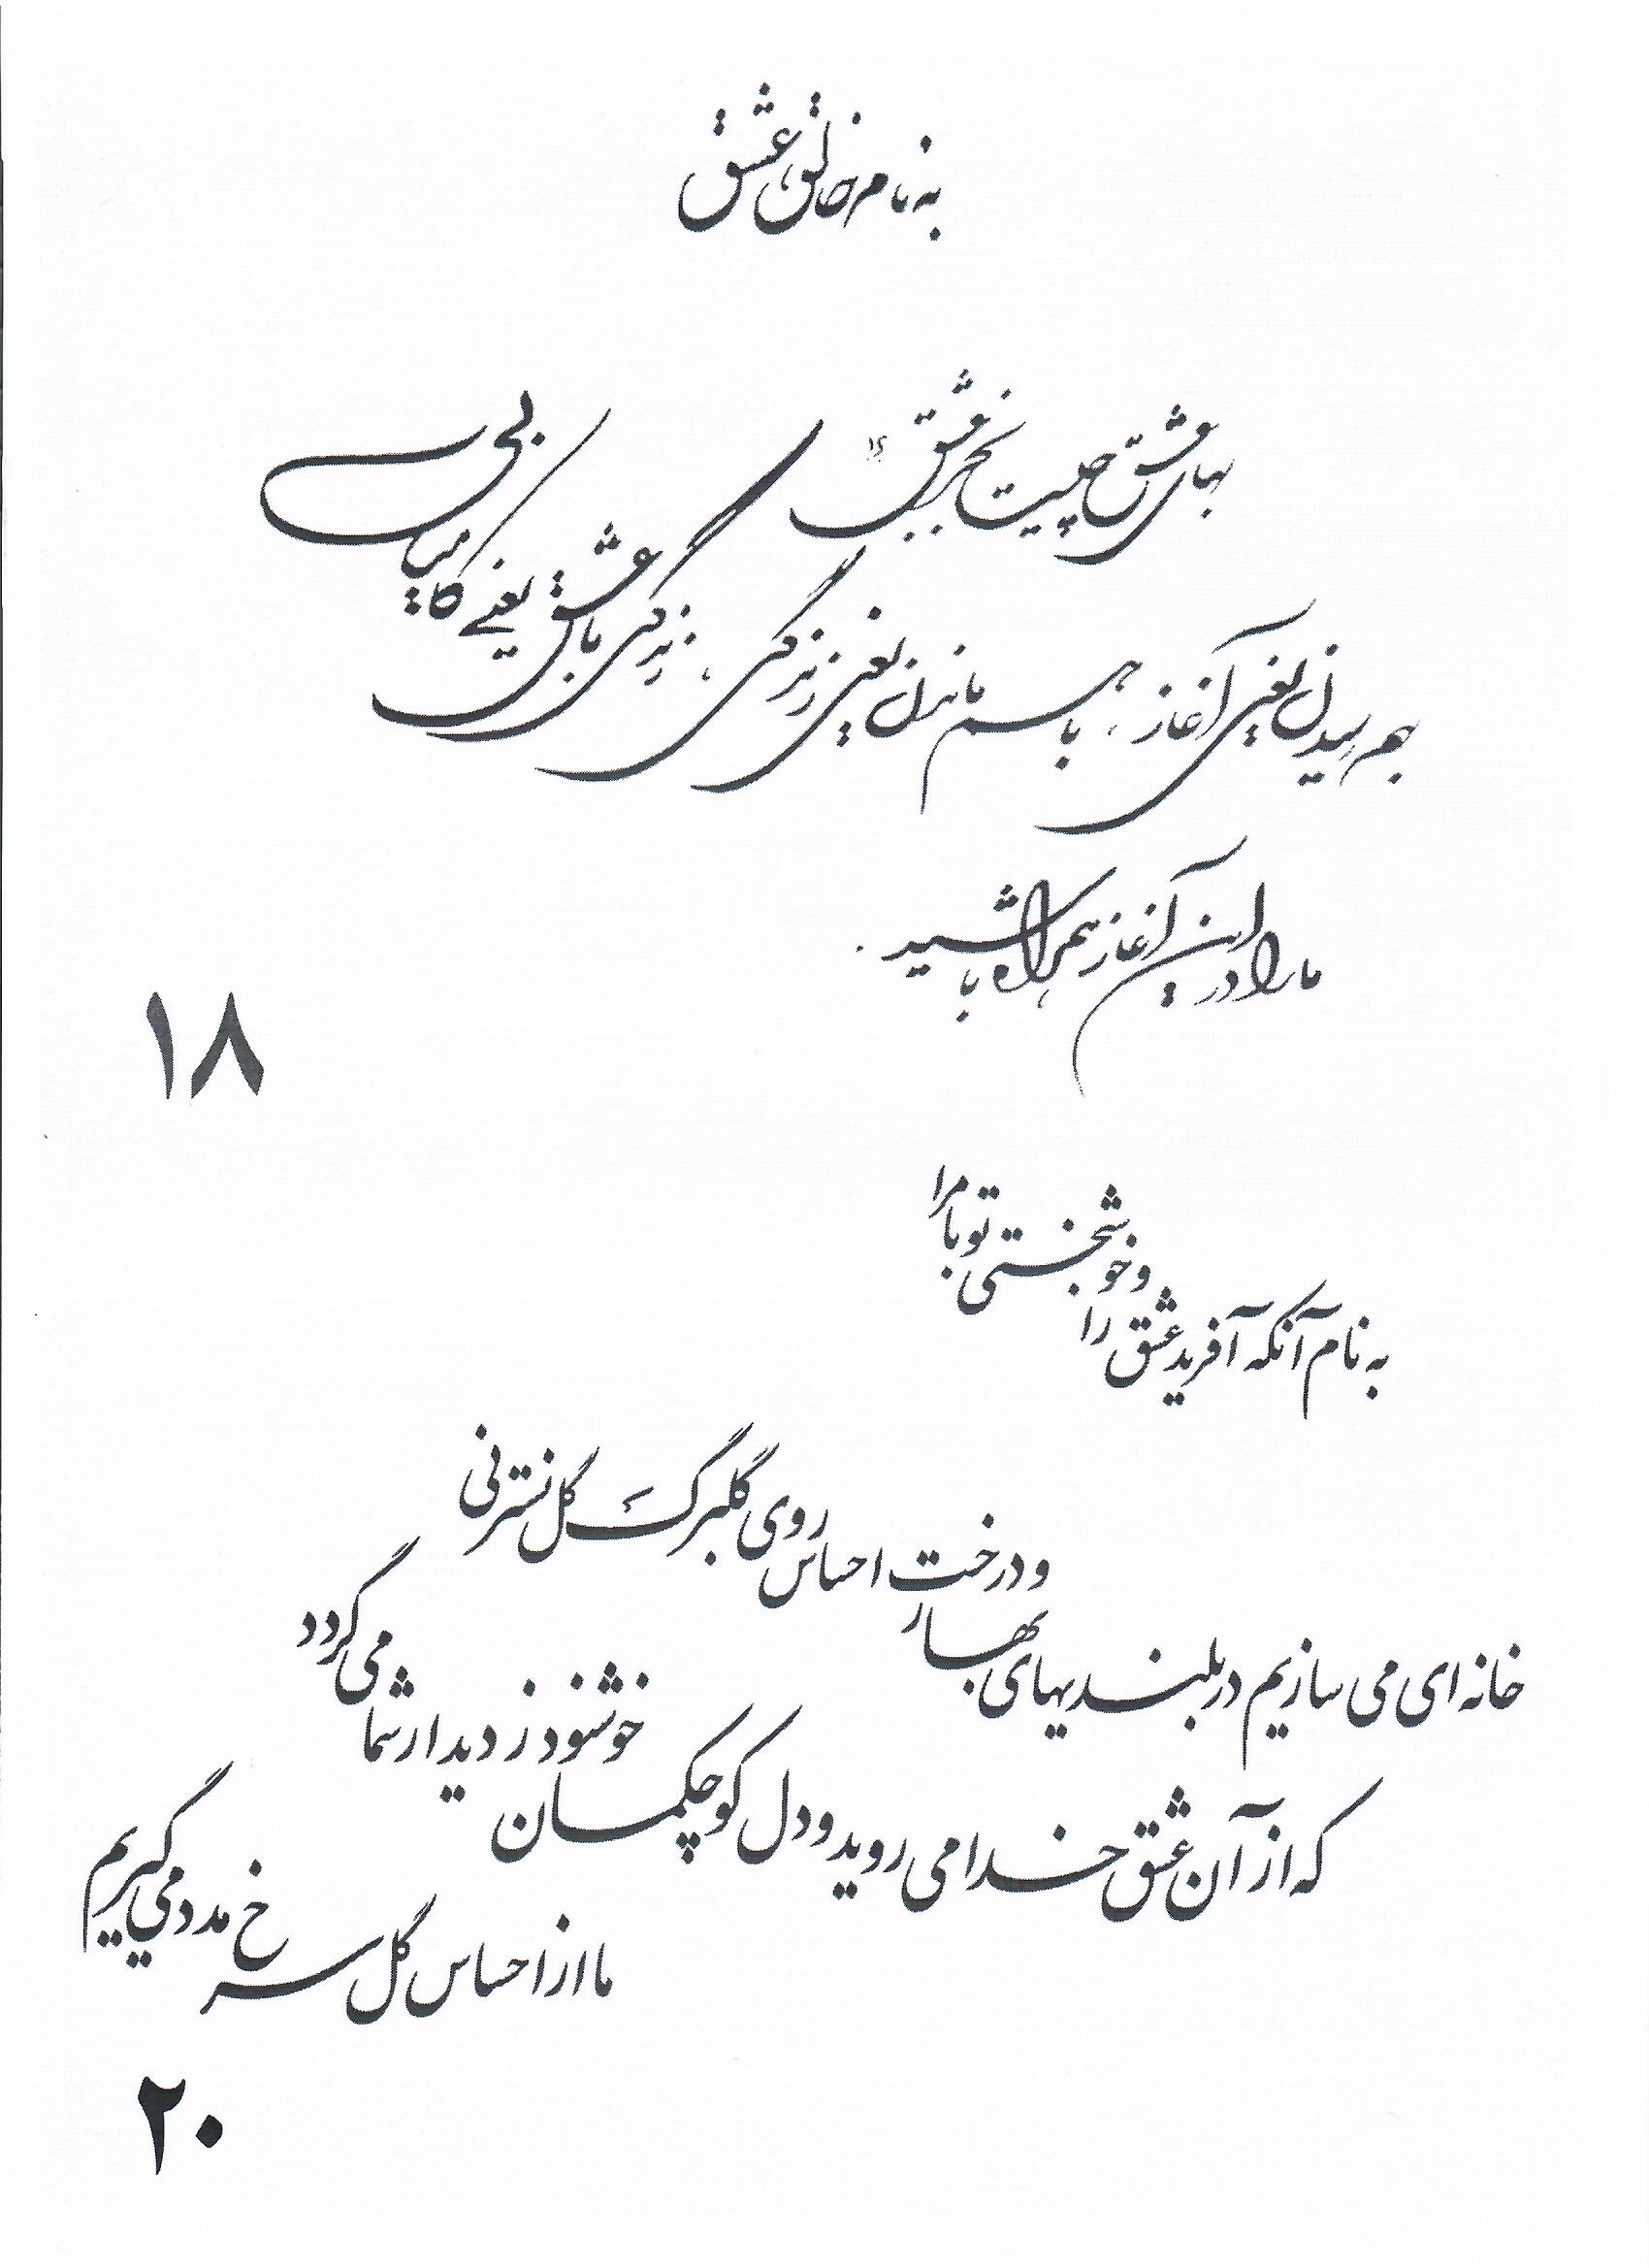 به نام خالق عشق
بهای عشق چیست بجز عشق
بهم رسیدن یعنی آغاز، با هم ماندن یعنی زندگی، زندگی با عشق یعنی کامیابی
ما را در این آغاز همراه باشید.
۱۸
به نام آنکه آفرید عشق را و خوشبختی تو با مرا
خانه ای می سازیم در بلندیهای بهار و درخت احساس روی گلبرگ گل نسترنی
که از آن عشق خدا می روید و دل کوچکمان خوشنود ز دیدار شما می گردد
ما از احساس گل سرخ مدد می گیریم
۲۰